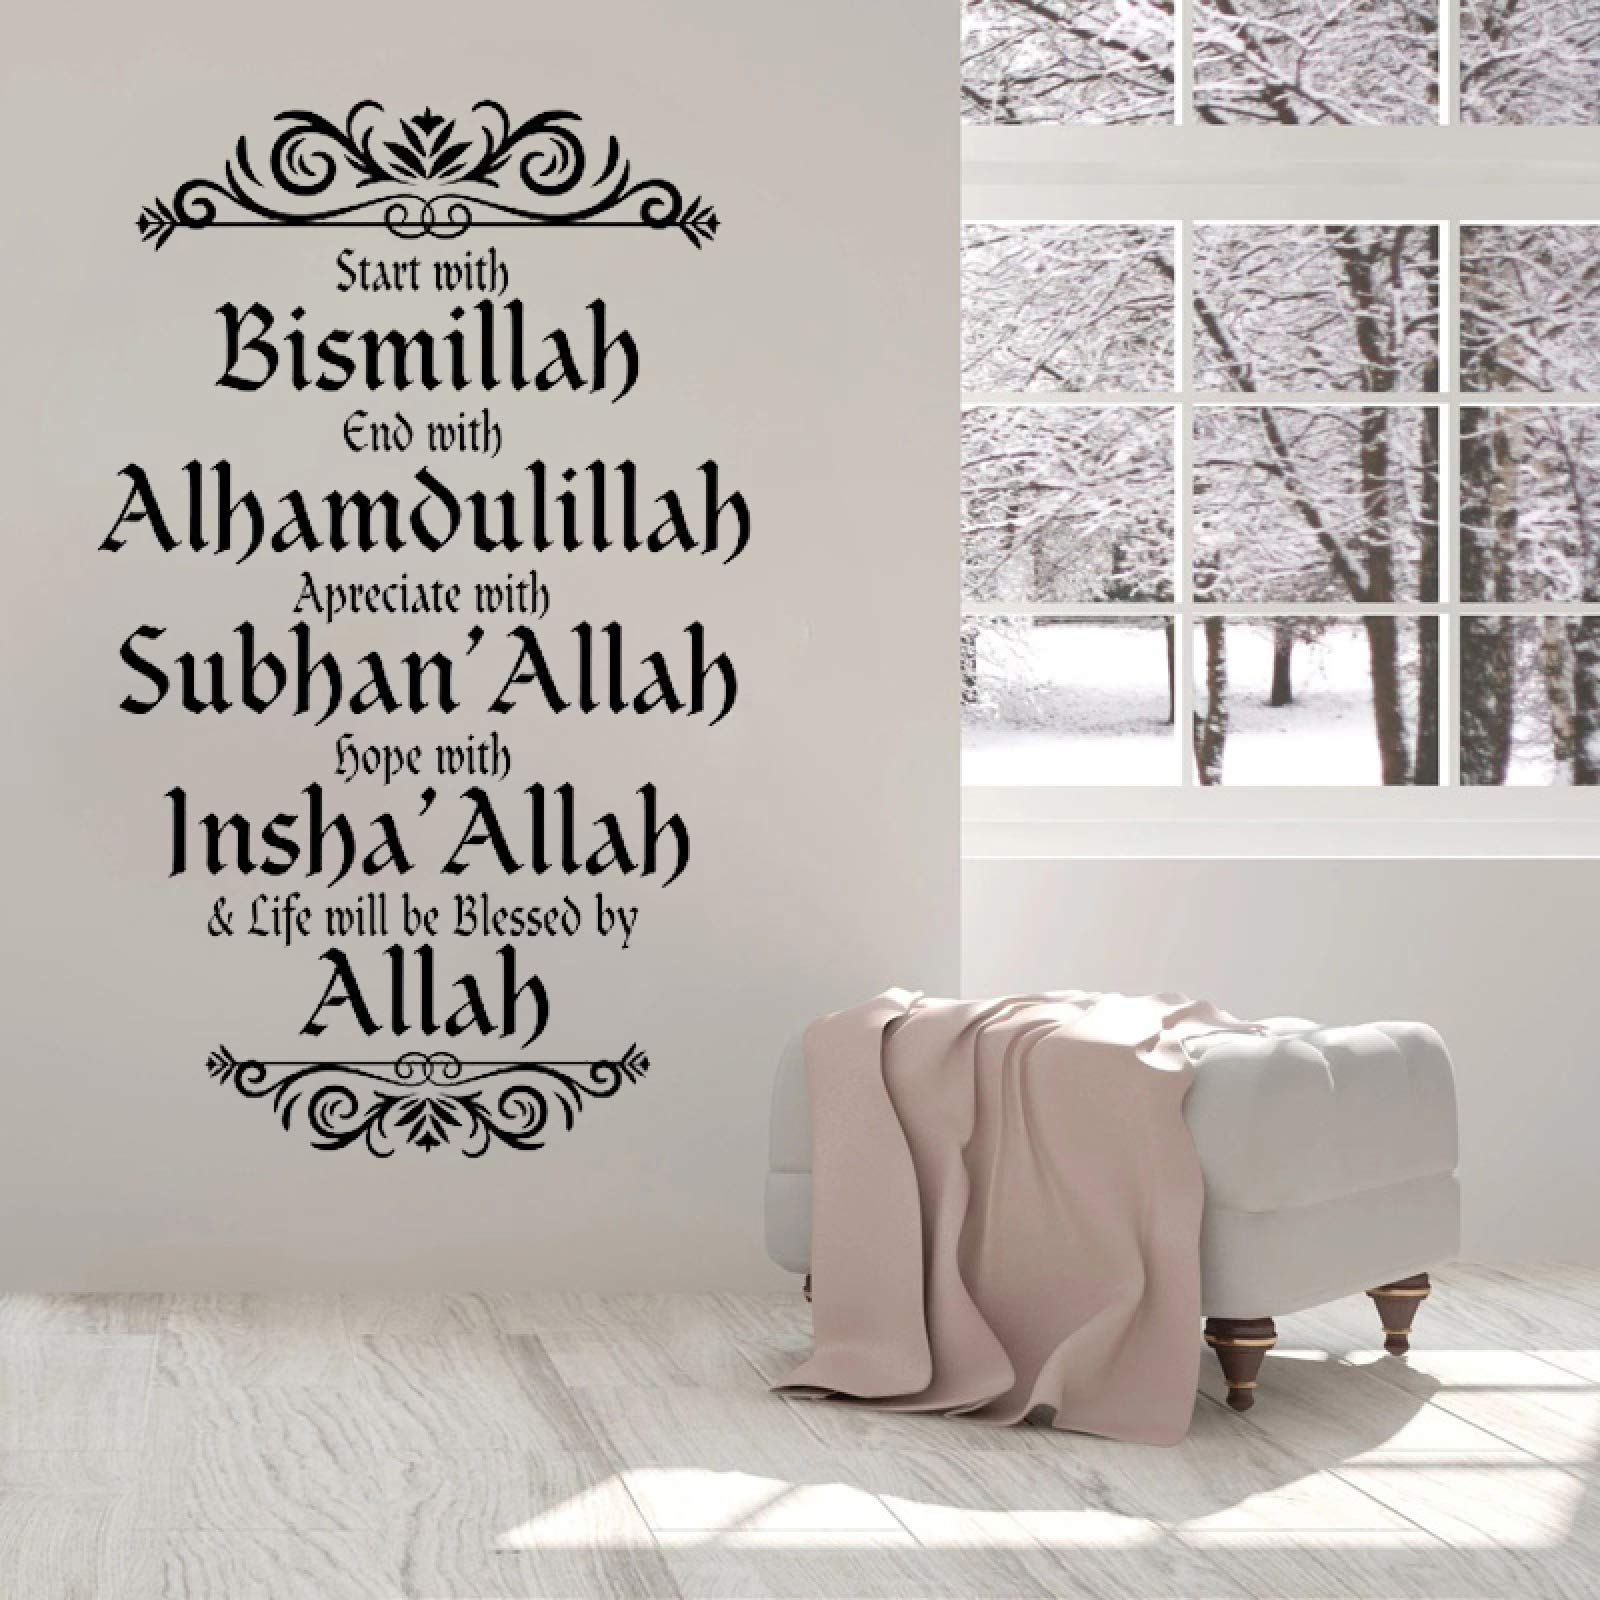 Start with
Bismillah
End with
Alhamdulillah
Apreciate with
Subhan'Allah
Hope with
Insha'Allah
& Life will be Blessed by
Allah